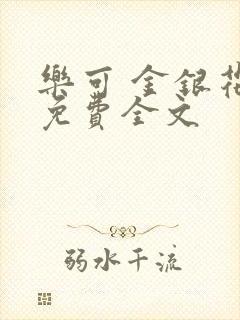 樂可 金銀花
免費全文
弱水千流